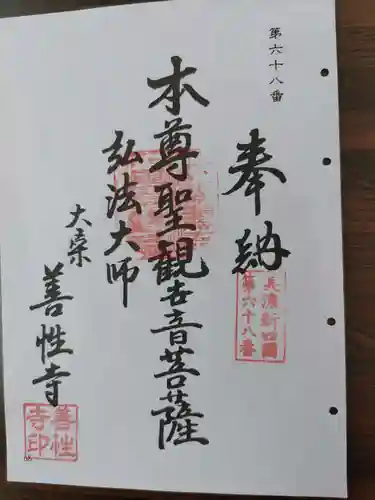 第六十八番
奉納
美濃新四国
第六十八番
本尊聖観世音菩薩
弘法大師
大栄
善性寺
善性
寺印